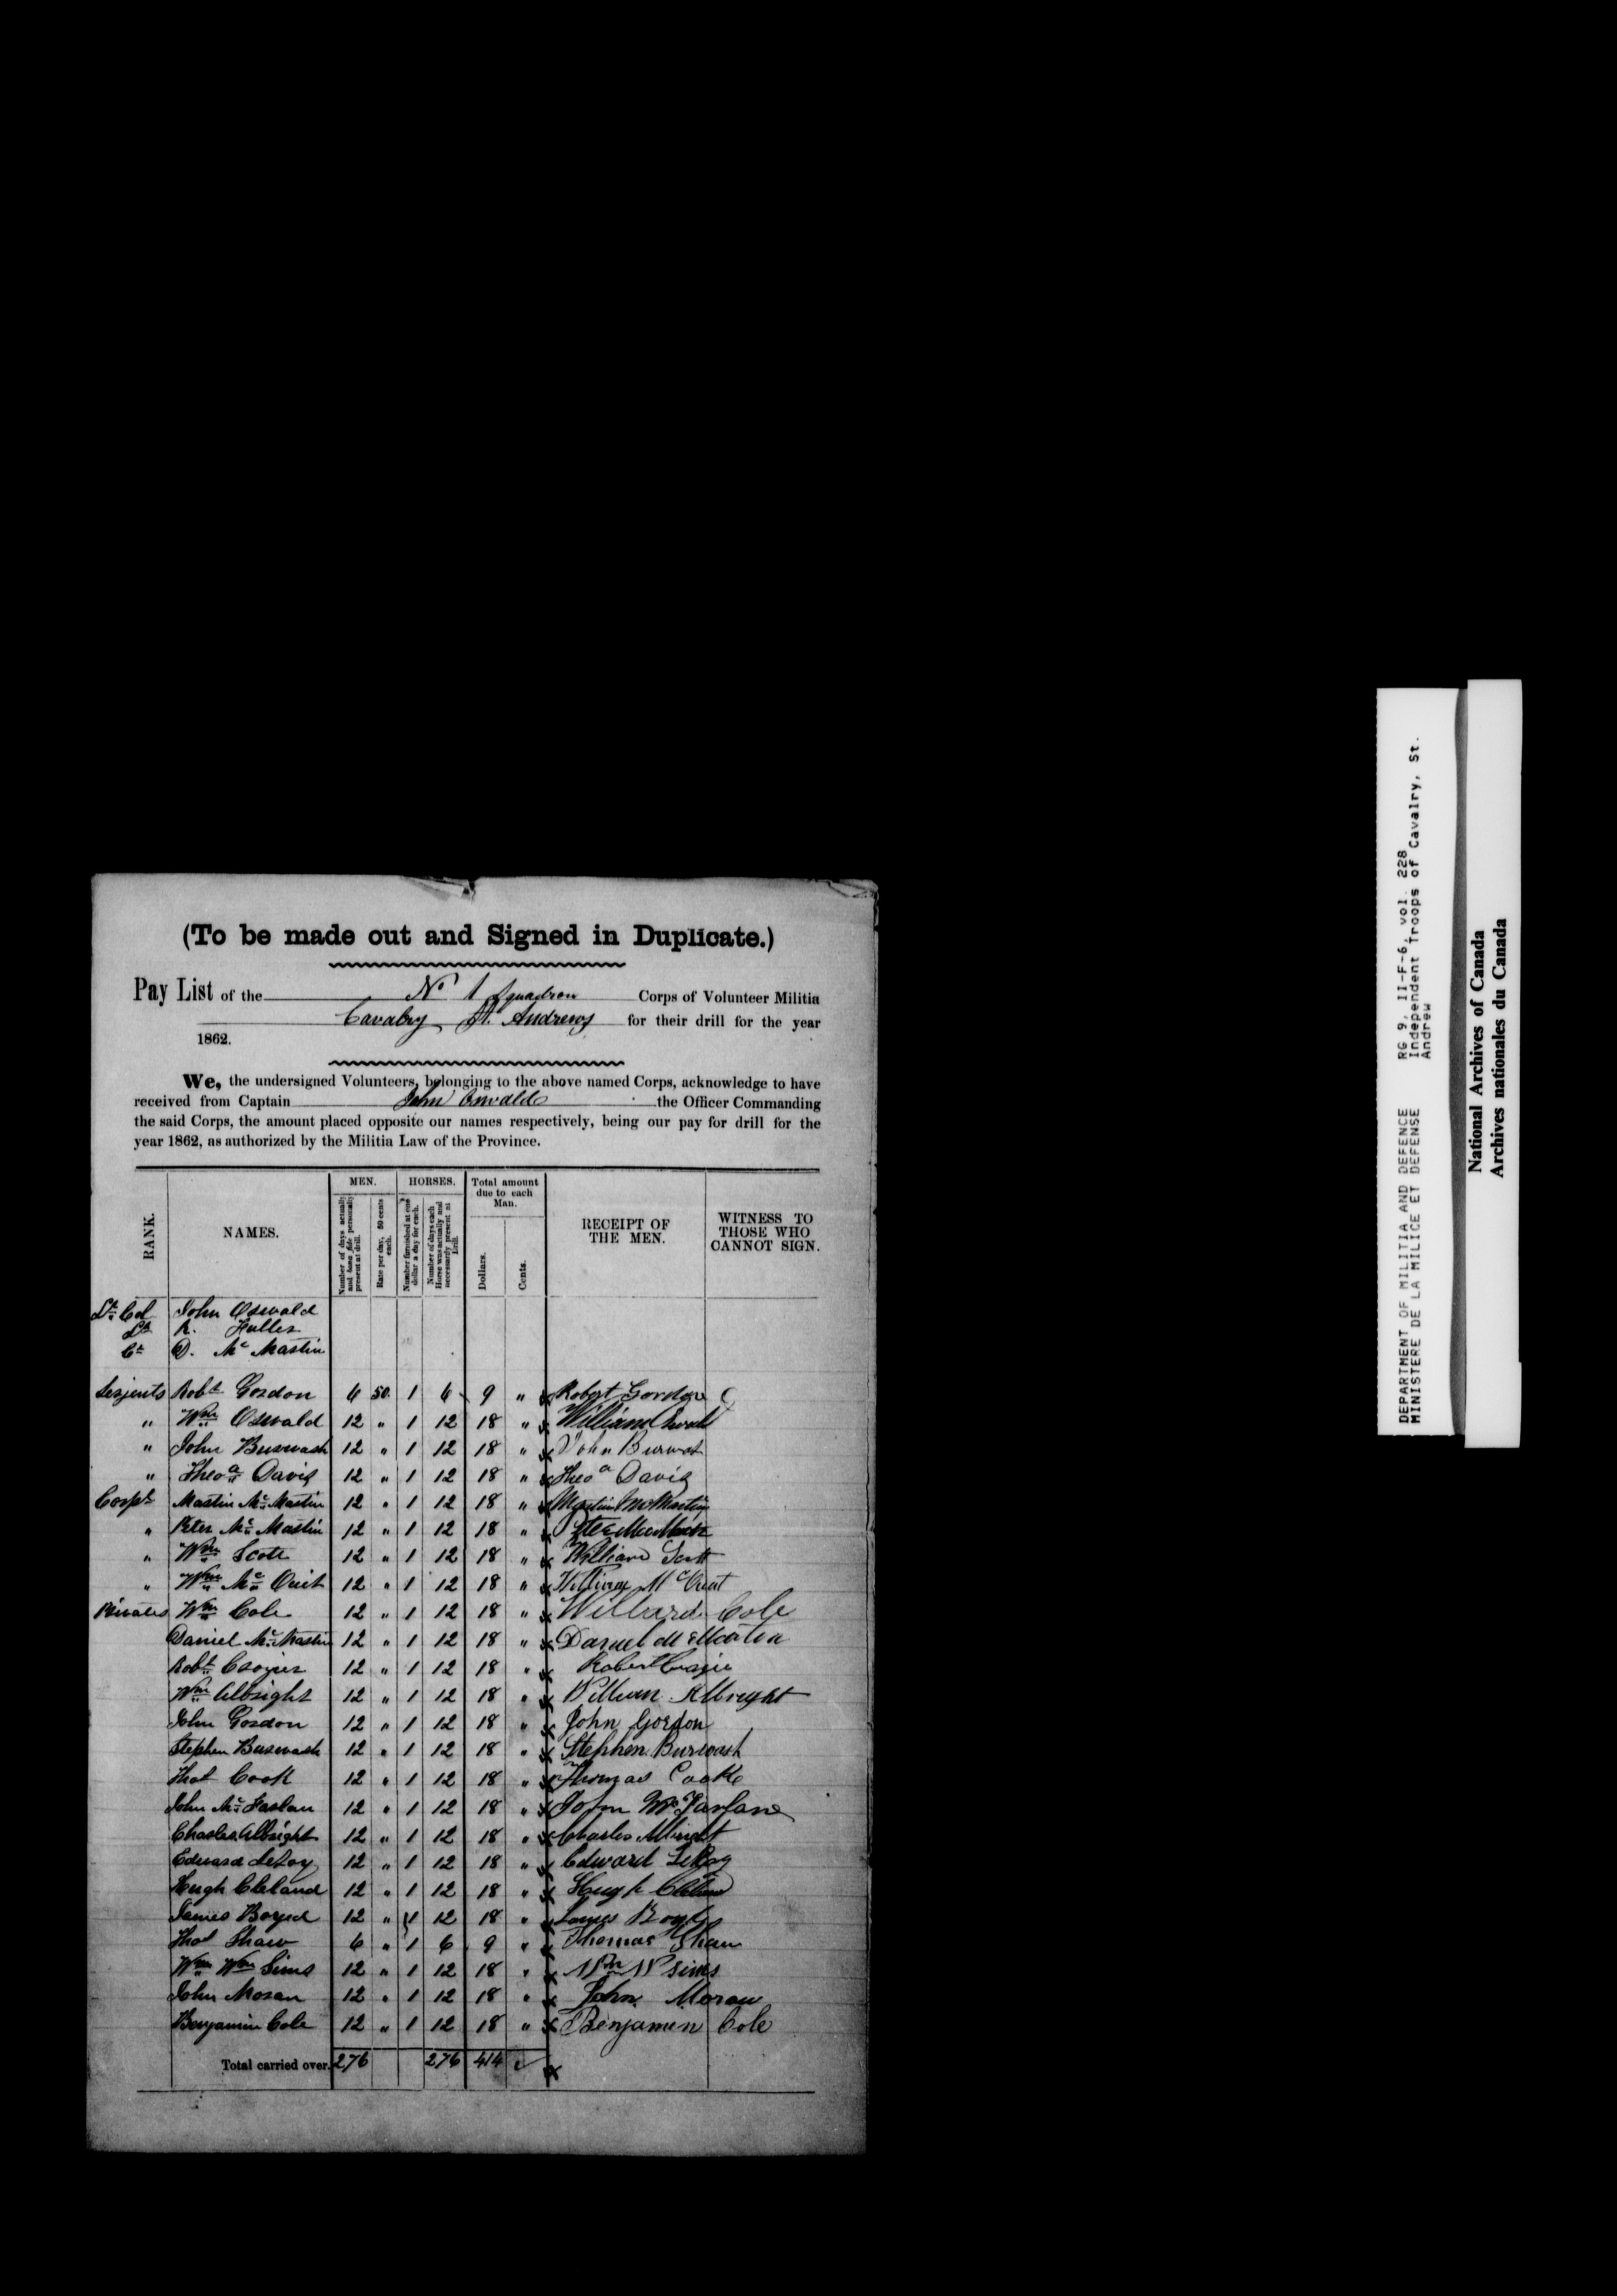 (To be made out and Signed in Duplicate.)
Pay List of the No 1 Squadron Corps of Volunteer Militia
Cavalry St. Andrews for their drill for the year
1862.
We, the undersigned Volunteers, belonging to the above named Corps, acknowledge to have
received from Captain John Oswald the Officer Commanding
the said Corps, the amount placed opposite our names respectively, being our pay for drill for the
year 1862, as authorized by the Militia Law of the Province.
RANK. NAMES. MEN. HORSES. Total amount due to each Man. RECEIPT OF THE MEN. WITNESS TO THOSE WHO CANNOT SIGN.
Number of days actually and bona fide personally present at drill. Rate per day, 50 cents each. Number furnished at one dollar a day for each. Number of days each Horse was actually and necessarily present at Drill. Dollars. Cents.
Lt. Col John Oswald
Lt R. Fuller
Ct D. Mc Martin
Serjents Robt Gordon 6 50 1 6 9 " x Robert Gordon
" Wm Oswald 12 " 1 12 18 " x William Oswald
" John Burwash 12 " 1 12 18 " x John Burwash
" Theoa Davis 12 " 1 12 18 " x Theoa Davis
Corpl Martin Mc Martin 12 " 1 12 18 " x Martin McMartin
" Peter Mc Martin 12 " 1 12 18 " x Peter McMartin
" Wm Scott 12 " 1 12 18 " x William Scott
" Wm Mc Ouit 12 " 1 12 18 " x William McOuat
Privates Wm Cole 12 " 1 12 18 " x Willard Cole
Daniel Mc Martin 12 " 1 12 18 " x Daniel McMartin
Robt Crozier 12 " 1 12 18 " x Robert Crozier
Wm Albright 12 " 1 12 18 " x William Albright
John Gordon 12 " 1 12 18 " x John Gordon
Stephen Burwash 12 " 1 12 18 " x Stephen Burwash
Thos Cook 12 " 1 12 18 " x Thomas Cooke
John Mc Farlan 12 " 1 12 18 " x John McFarlane
Charles Albright 12 " 1 12 18 " x Charles Albright
Edward LeRoy 12 " 1 12 18 " x Edward LeRoy
Hugh Cleland 12 " 1 12 18 " x Hugh Cleland
James Boyed 12 " 1 12 18 " x James Boyd
Thos Shaw 6 " 1 6 9 " x Thomas Shaw
Wm Wm Sims 12 " 1 12 18 " x Wm W Sims
John Moran 12 " 1 12 18 " x John Moran
Benjamin Cole 12 " 1 12 18 " x Benjamen Cole
Total carried over. 276 276 414 x
DEPARTMENT OF MILITIA AND DEFENCE RG 9, II-F-6, vol. 228
MINISTERE DE LA MILICE ET DEFENSE Independent Troops of Cavalry, St.
Andrew
National Archives of Canada
Archives nationales du Canada